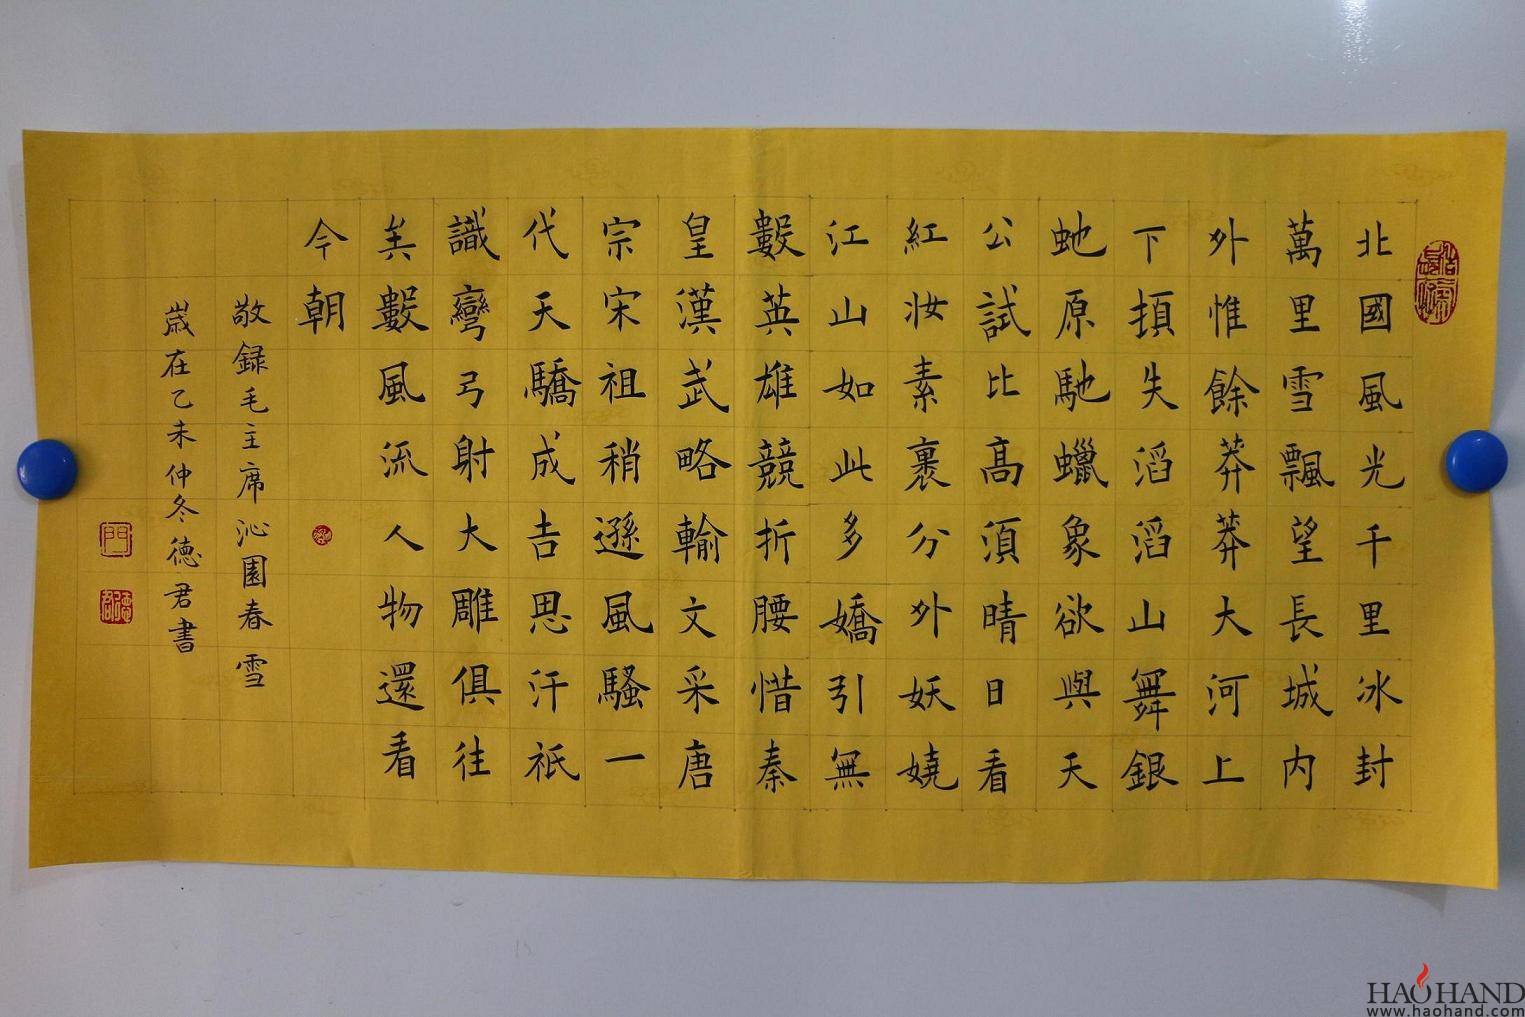 北國風光千里冰封
萬里雪飄望長城内
外惟餘莽莽大河上
下頓失滔滔山舞銀
虵原馳蠟象欲與天
公試比高須晴日看
紅妝素裹分外妖嬈
江山如此多嬌引無
數英雄競折腰惜秦
皇漢武略輸文采唐
宗宋祖稍遜風騷一
代天驕成吉思汗祇
識彎弓射大雕俱往
矣數風流人物還看
今朝
敬録毛主席沁園春雪
歲在乙未仲冬德君書
HAOHAND
www.haohand.com